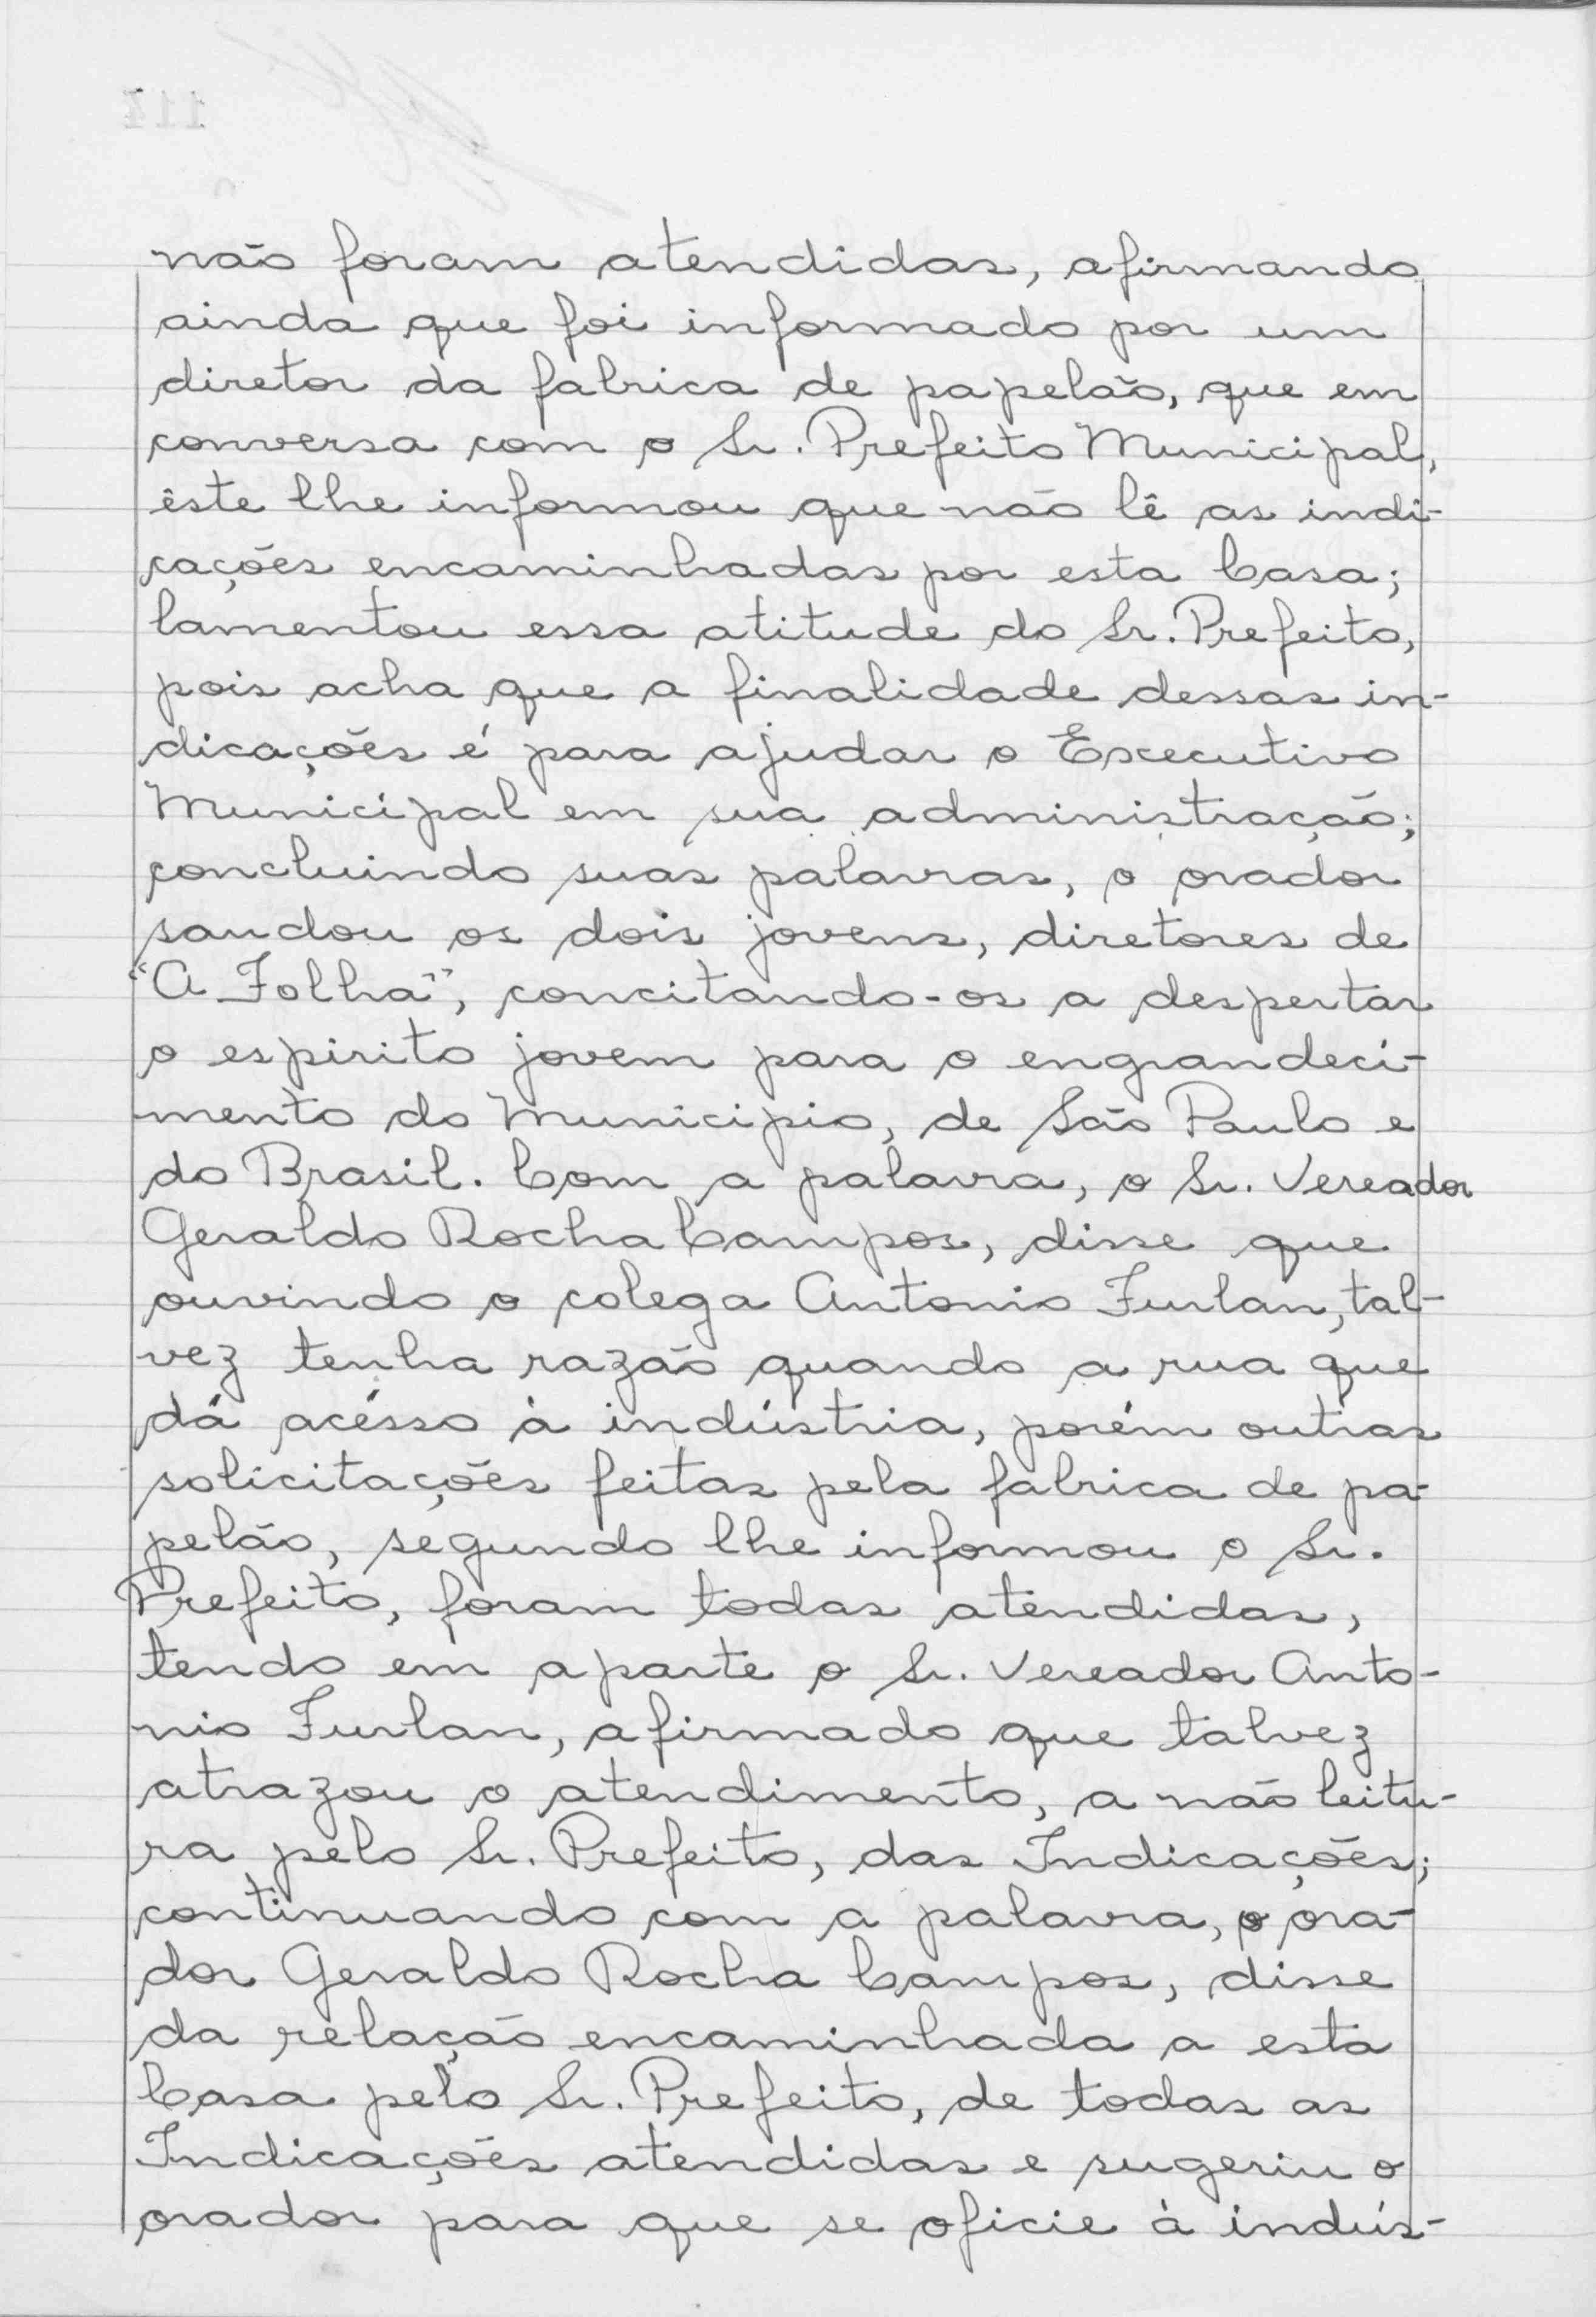 não foram atendidas, afirmando
ainda que foi informado por um
diretor da fabrica de papelão, que em
conversa com o Sr. Prefeito Municipal,
êste lhe informou que não lê as indi-
cações encaminhadas por esta Casa;
lamentou essa atitude do Sr. Prefeito,
pois acha que a finalidade dessas in-
dicações é para ajudar o Executivo
Municipal em sua administração;
concluindo suas palavras, o orador
saudou os dois jovens, diretores de
"A Folha", concitando-os a despertar
o espirito jovem para o engrandeci-
mento do Municipio, de São Paulo e
do Brasil. Com a palavra, o Sr. Vereador
Geraldo Rocha Campos, disse que
ouvindo o colega Antonio Furlan, tal-
vez tenha razão quando a rua que
dá acésso à indústria, porém outras
solicitações feitas pela fabrica de pa-
pelão, segundo lhe informou o Sr.
Prefeito, foram todas atendidas,
tendo em aparte o Sr. Vereador Anto-
nio Furlan, afirmado que talvez
atrazou o atendimento, a não leitu-
ra pelo Sr. Prefeito, das Indicações;
continuando com a palavra, o ora-
dor Geraldo Rocha Campos, disse
da relação encaminhada a esta
Casa pelo Sr. Prefeito, de todas as
Indicações atendidas e sugeriu o
orador para que se oficie à indús-